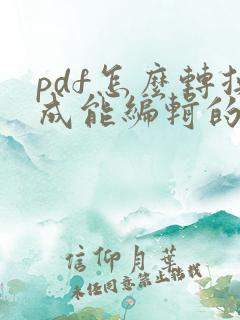 pdf怎麼轉
成能編輯的
信仰月葉
未經同意禁止轉載